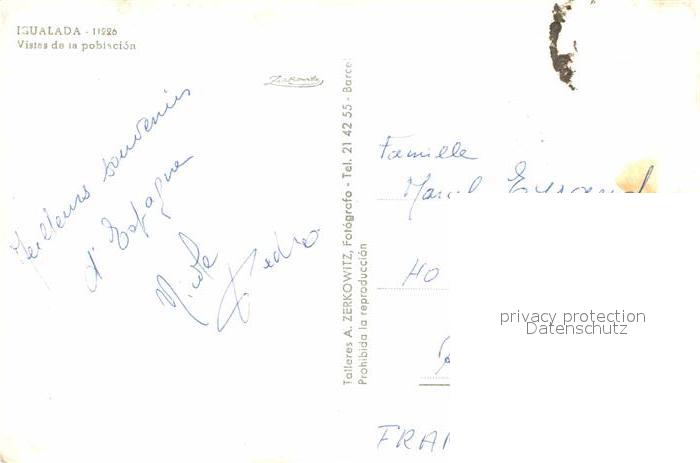 IGUALADA - 11226
Vistas de la población
Zerkowitz
Meilleurs souvenirs
d'Espagne
Nicole Pedro
Talleres A. ZERKOWITZ, Fotógrafo - Tel. 21 42 55 - Barcel
Prohibida la reproducción
Famille
Marcel
HO
FRAN
privacy protection
Datenschutz